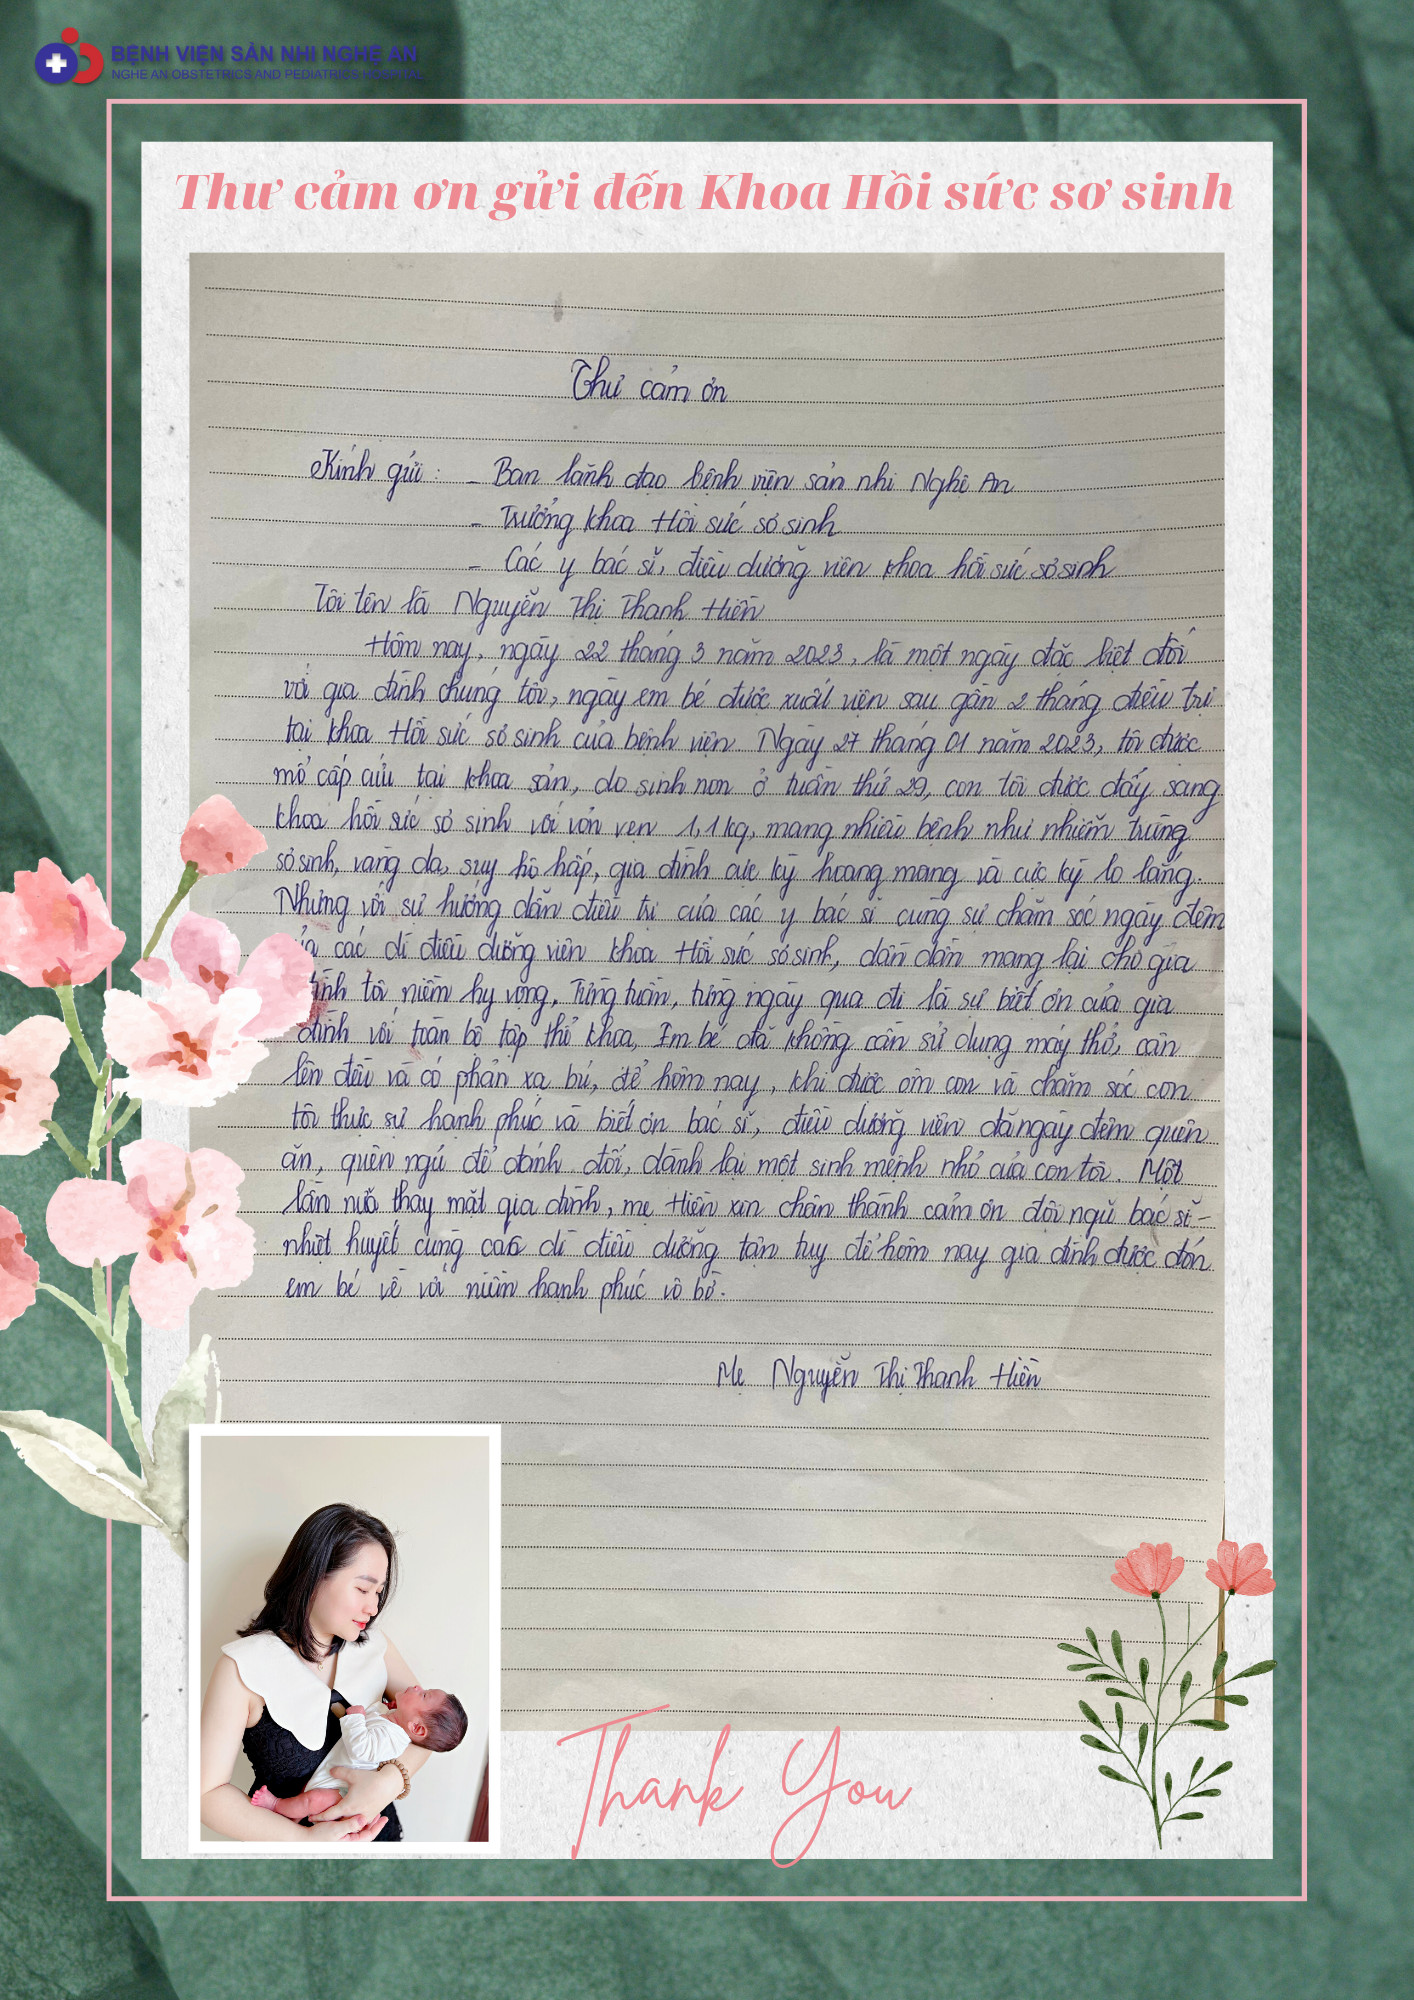 BỆNH VIỆN SẢN NHI NGHỆ AN
NGHE AN OBSTETRICS AND PEDIATRICS HOSPITAL
Thư cảm ơn gửi đến Khoa Hồi sức sơ sinh
Thư cảm ơn
Kính gửi: - Ban lãnh đạo bệnh viện sản nhi Nghệ An
- Trưởng khoa Hồi sức sơ sinh
- Các y bác sĩ, điều dưỡng viên khoa hồi sức sơ sinh
Tôi tên là Nguyễn Thị Thanh Hiền
Hôm nay, ngày 22 tháng 3 năm 2023, là một ngày đặc biệt đối
với gia đình chúng tôi, ngày em bé được xuất viện sau gần 2 tháng điều trị
tại khoa Hồi sức sơ sinh của bệnh viện Ngày 27 tháng 01 năm 2023, tôi được
mổ cấp cứu tại khoa sản, do sinh non ở tuần thứ 29, con tôi được đẩy sang
khoa hồi sức sơ sinh với vỏn vẹn 1,1kg, mang nhiều bệnh như nhiễm trùng
sơ sinh, vàng da, suy hô hấp, gia đình cực kỳ hoang mang và cực kỳ lo lắng.
Nhưng với sự hướng dẫn điều trị của các y bác sĩ cùng sự chăm sóc ngày đêm
các dì điều dưỡng viên khoa Hồi sức sơ sinh, dần dần mang lại cho gia
đình tôi niềm hy vọng. Từng tuần, từng ngày qua đi là sự biết ơn của gia
đình với toàn bộ tập thể khoa. Em bé đã không cần sử dụng máy thở, cân
lên đều và có phản xạ bú, để hôm nay, khi được ôm con và chăm sóc con
tôi thực sự hạnh phúc và biết ơn bác sĩ, điều dưỡng viên đã ngày đêm quên
ăn, quên ngủ để đánh đổi, dành lại một sinh mệnh nhỏ của con tôi. Một
lần nữa thay mặt gia đình, mẹ Hiền xin chân thành cảm ơn đội ngũ bác sĩ -
nhiệt huyết cùng các dì điều dưỡng tận tuỵ để hôm nay gia đình được đón
em bé về với niềm hạnh phúc vô bờ.
Mẹ Nguyễn Thị Thanh Hiền
Thank You